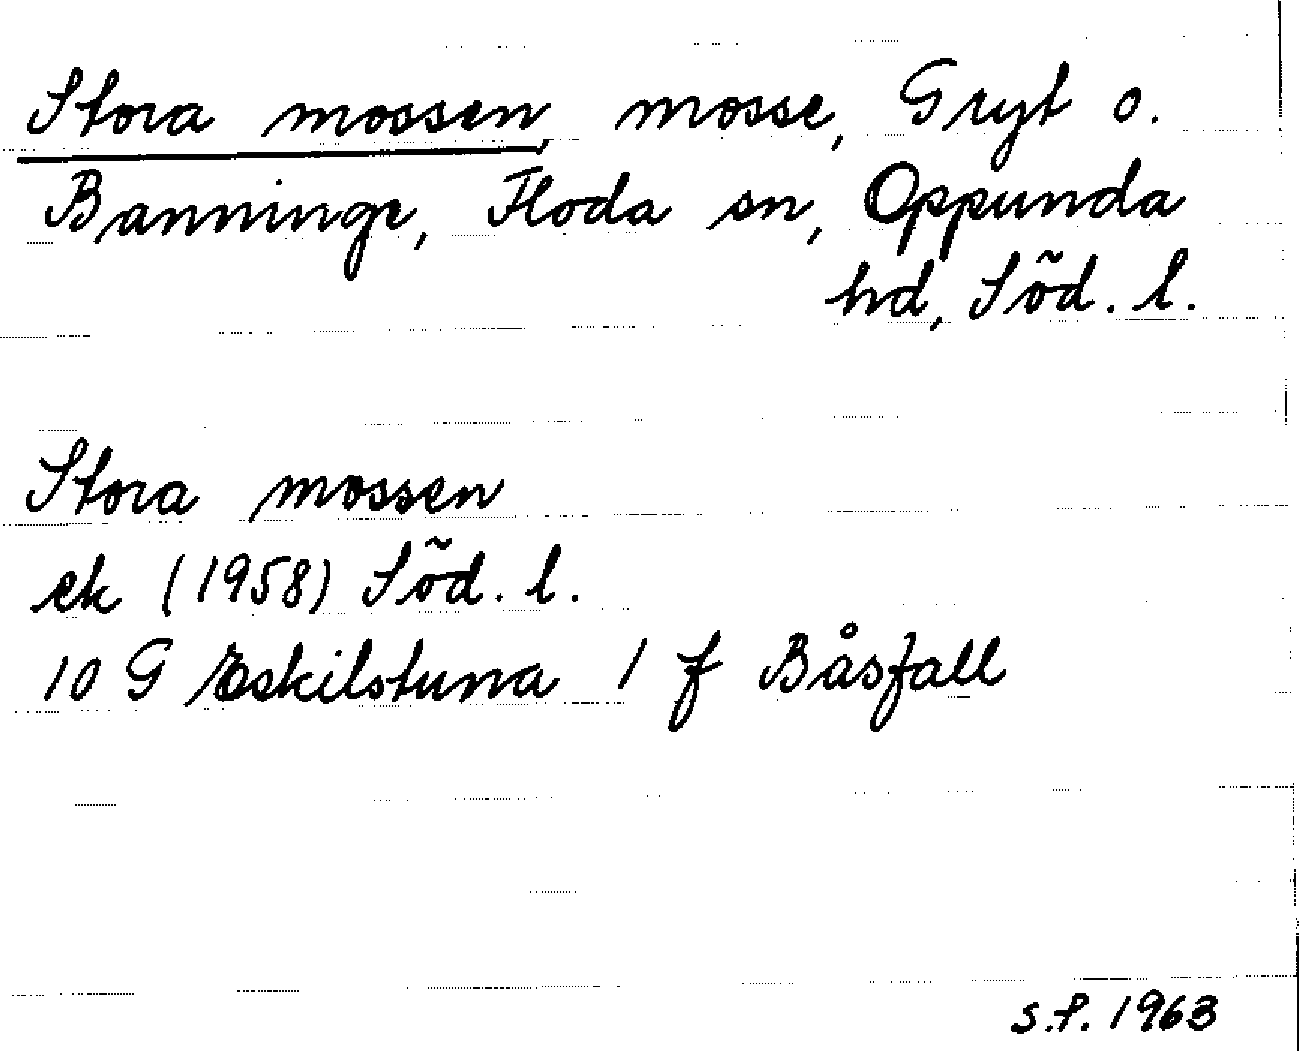 Stora mossen, mosse, Gryt o.
Banninge, Floda sn, Oppunda
hd, Söd. l.
Stora mossen
ek (1958) Söd. l.
10 G Eskilstuna 1 f Båsfall
S.P. 1963